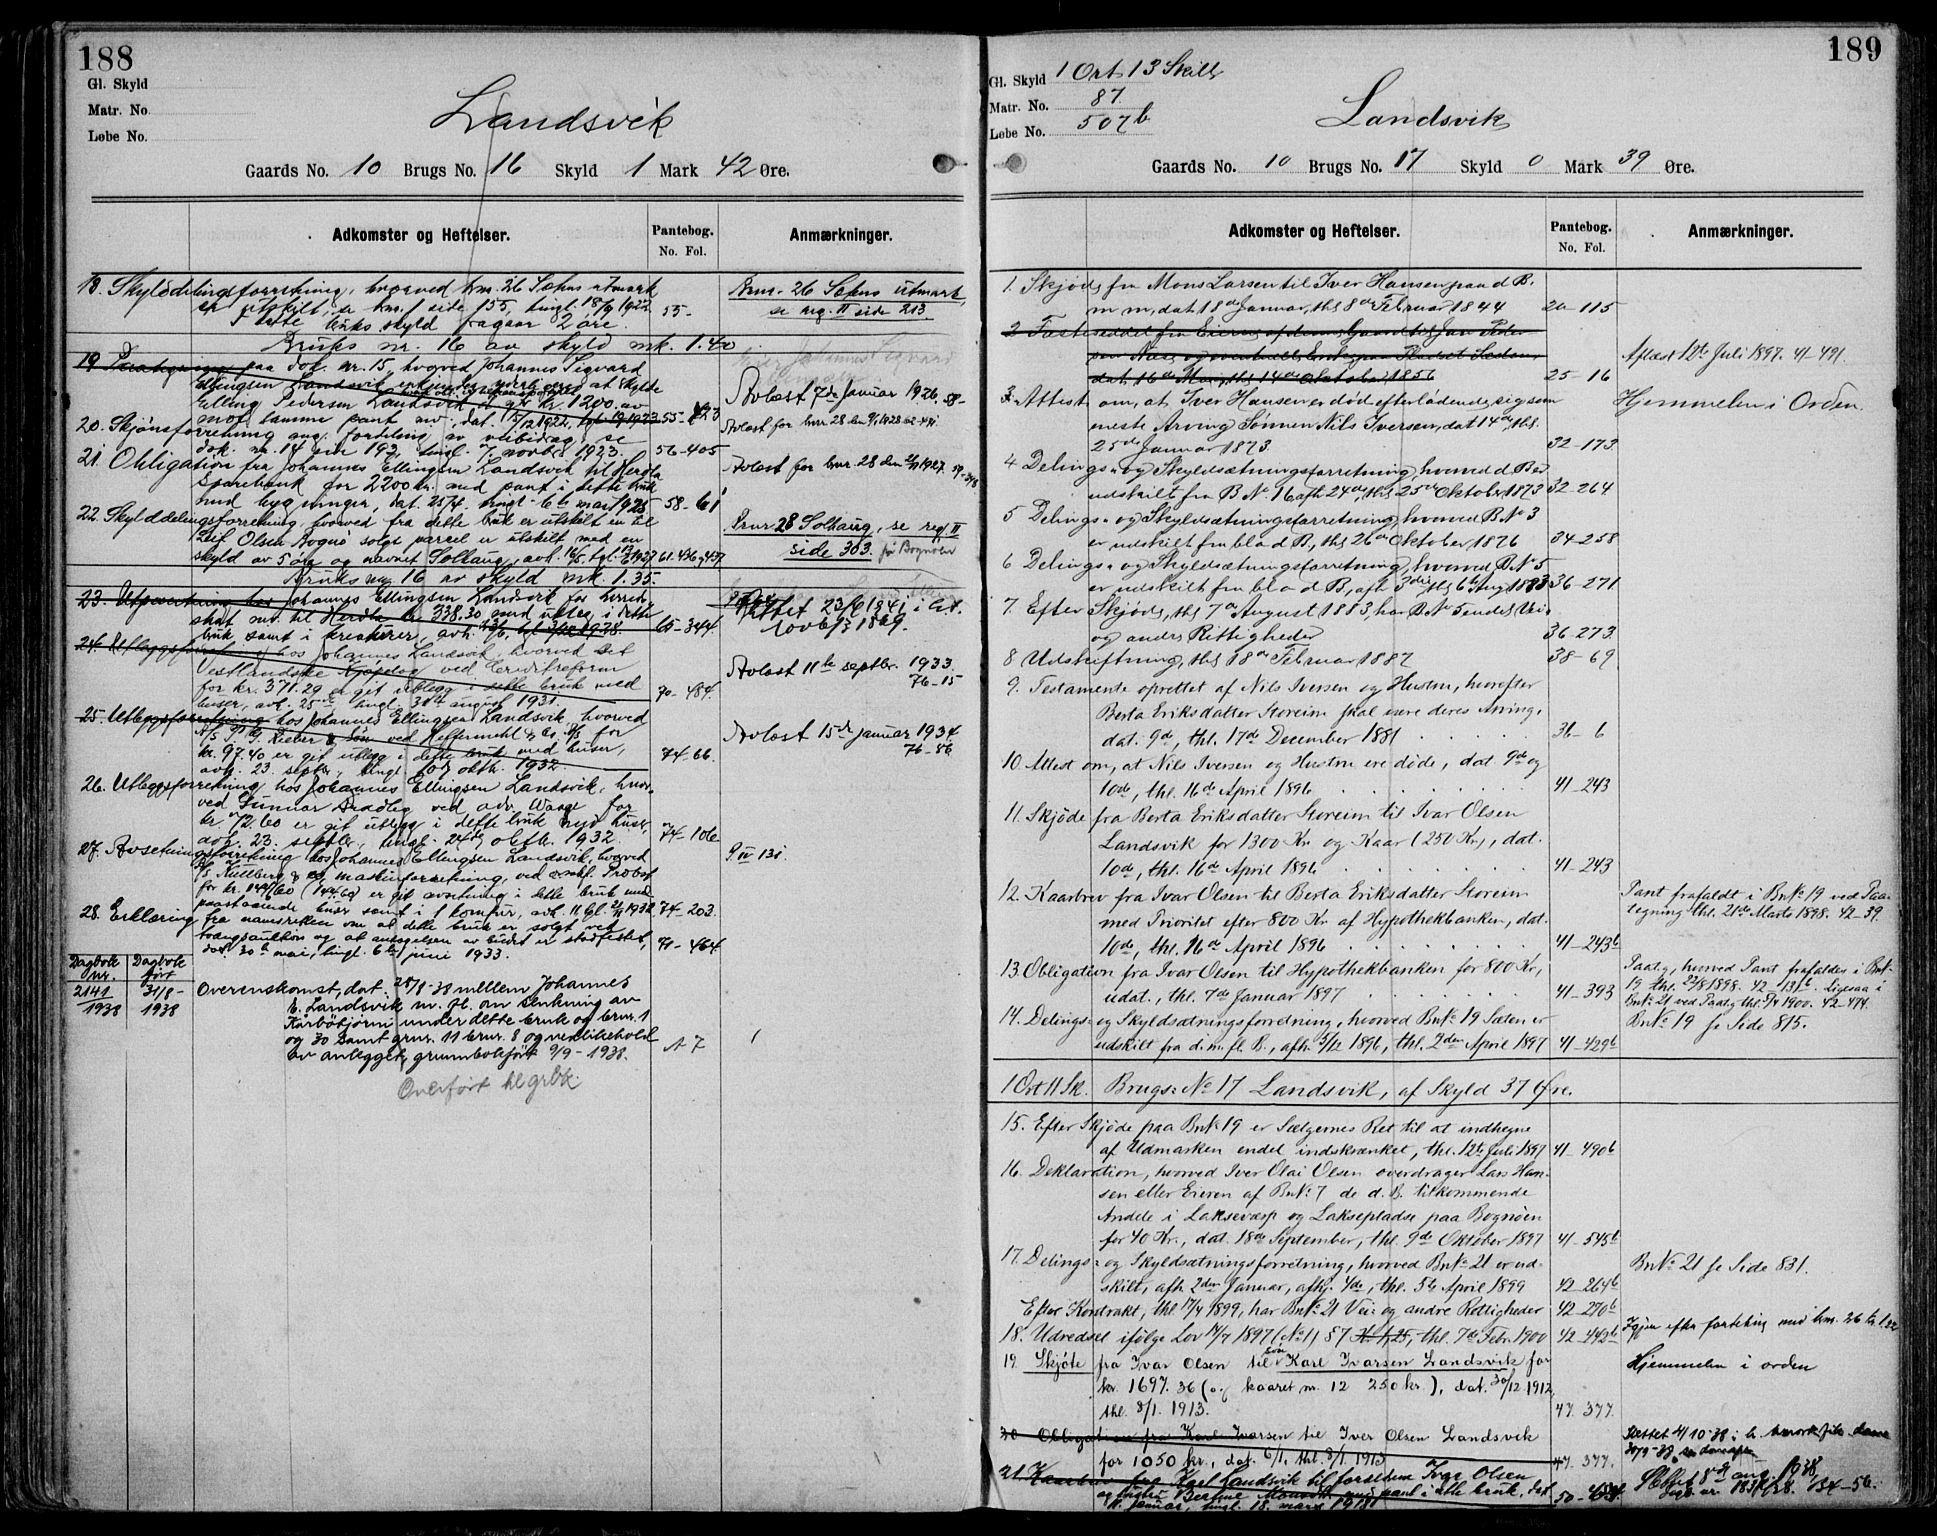 188
Gl. Skyld
Matr. No.
Løbe No.
Landsvik
Gaards No. 10 Brugs No. 16 Skyld 1 Mark 42 Øre.
Adkomster og Heftelser.
Pantebog.
No. Fol.
Anmærkninger.
18. Skylddelingsforretning, hvorved bnr. 26 Sæhns utmark
er utskilt, se bnr. 1 side 155, tingl. 18/9 1922
I dette bruks skyld fragaar 2 øre. 55-
Bnr. 26 Sæhns utmark,
se reg. II side 213
Bruks nr. 16 av skyld mk. 1.40
19. paa dok. nr. 15, hvorved Johannes Sigvard
Ellingsen Landsvik at skylde
Elling Pedersen Landsvik kr. 1200. av
mot samme pant dat. 15/12 1922, 1923 55-
Avlæst 7de Januar 1926. 58-
20. Skjønsforretning ang. fordeling av veibidrag, se
dok. nr. 14 193, tingl. 7. novbr. 1923. 56-405
Avlæst for bnr. 28 den
21. Obligation fra Johannes Ellingsen Landsvik til Herdla
Sparebank for 2200 kr. med pant i dette bruk
med bygninger, dat. 25/4, tingl. 6te mai 1925 58-61
Avlæst for bnr. 28 den 1927.
22. Skylddelingsforretning, hvorved fra dette bruk er utskilt en til
Olsen Bognø solgt parcel er utskilt med en
skyld av 5 øre og navnet Solhaug, avh. 16/5, tgl. 1927 61-436 457
Bnr 28 Solhaug, se reg II
side 303. på Bognøen
Bruks nr. 16 av skyld mk. 1.35.
23. Utpantning hos Johannes Ellingsen Landsvik for herreds
skat mv. til Herdla kr. 338.30 med utlæg i dette
bruk samt i kreaturer, avh. 1928. 65-344
24. Utlegsforretning hos Johannes Landsvik, hvorved Det
Vestlandske Kjøpelag ved Creditreform
for kr. 371.29 er git utlegg i dette bruk med
huser, avh. 25de, tingl. 31te august 1931. 70-484.
Avlæst 11te septbr. 1933.
76-15
25. Utlegsforretning hos Johannes Ellingsen Landsvik, hvorved
A/S G. Rieber & Søn ved Heffermehl & Co. A/S for
kr. 97.40 er git utlegg i dette bruk med huser,
avh. 23. septbr., tingl. oktb. 1932. 74-66.
Avlæst 15de januar 1934.
76-86
26. Utlegsforretning hos Johannes Ellingsen Landsvik, hvor-
ved Gunnar Bradley ved adv. Waage for
kr. 72.60 er git utlegg i dette bruk med huser,
avh. 23. septbr., tingl. 24de oktb. 1932. 74-106
27. Avsetningsforretning hos Johannes Ellingsen Landsvik, hvorved
A/S Kullberg & co. maskinforretning, ved Probst
for kr. er git avsetning i dette bruk med
paastaaende huser samt i 1 komfur, avh. 11. tgl. 1932 74-203.
28. Erklæring fra namsretten om at dette bruk er solgt ved
tvangsauktion og at antagelsen av budet er stadfestet,
dat. 30te mai, tingl. 6te juni 1933. 71-464
Dagbok nr. Dagbok ført
2141 31/8-
1938 1938
Overenskomst, dat. 29/8-38 mellem Johannes
E. Landsvik m. fl. om senkning av
Karbøtjørni under dette bruk og brnr. 1
og 30 samt gnr. 11 brnr. 8 og vedlikehold
av anlegget, grunnbokført 9/9-1938. A 7
Overført til grbk.
189
Gl. Skyld 1 Ort 13 Skill
Matr. No. 87
Løbe No. 507b
Landsvik
Gaards No. 10 Brugs No. 17 Skyld 0 Mark 39 Øre.
Adkomster og Heftelser.
Pantebog.
No. Fol.
Anmærkninger.
1. Skjøde fra Mons Larsen til Iver Hansen paa d B.
m m, dat 18de Januar, thl 8de Februar 1844 20-115
2 Fæsteseddel fra Eieren af denne Gaard til Jan Peder-
dat. 16de Mai, thl 14de Oktober 1856 25-16
Aflæst 12te Juli 1897. 41-491.
3. Attest om, at Iver Hansen er død efterladende sig som
eneste Arving Sønnen Nils Iversen, dat 14de, thl.
25de Januar 1873 32-173
Hjemmelen i Orden.
4 Delings- og Skyldsætningsforretning, hvorved d B er
udskilt fra B No 16 afh 24de, thl 25de Oktober 1873 32-264
5 Delings- og Skyldsætningsforretning, hvorved B No 3
er udskilt fra bla d B, thl 26de Oktober 1876 34-258
6 Delings- og Skyldsætningsforretning, hvorved B No 5
er udskilt fra bla d B, afh 3die, thl 6te Aug 1883 36-271
7. Efter Skjøde, thl 7de August 1883, har B No 5 endel Vei-
og andre Rettigheder 36-273
8 Udskiftning, thl 18de Februar 1887 38-69
9. Testamente oprettet af Nils Iversen og Hustru, hvorefter
Berta Eriksdatter Storeim skal være deres Arving,
dat. 9de, thl. 17de December 1881 36-6
10. Attest om, at Nils Iversen og Hustru ere døde, dat 9de og
10de, thl. 16de April 1896 41-243
11. Skjøde fra Berta Eriksdatter Storeim til Ivar Olsen
Landsvik for 1300 Kr. og Kaar (250 Kr.), dat.
10de, thl. 16de April 1896 41-243
12. Kaarbrev fra Ivar Olsen til Berta Eriksdatter Storeim
med Prioritet efter 800 Kr. af Hypothekbanken, dat.
10de, thl. 16de April 1896 41-243b
Pant frafaldt i BnNo 19 ved Paa-
tegning thl. 21de Marts 1898. 42-39.
13. Obligation fra Ivar Olsen til Hypothekbanken for 800 Kr.,
udat., thl. 7de Januar 1897 41-393
Paateg., hvorved Pant frafaldes i BnNo
19 thl. 23/8 1898. 42-131b. Ligesaa i
BnNo 21 ved Paateg. thl. 5/4 1900. 42-474.
14. Delings- og Skyldsætningsforretning, hvorved BnNo 19 Sæten er
udskilt fra d. m. fl. B., afh. 5/12 1896, thl. 2den April 1897 41-429b
BnNo 19 se Side 815.
1 Ort 11 Sk. Brugs-No 17 Landsvik, af Skyld 37 Øre.
15. Efter Skjøde paa BnNo 19 er Sælgernes Ret til at indhegne
af Udmarken endel indskrænket, thl. 12te Juli 1897 41-490b
16. Deklaration, hvorved Iver Olai Olsen overdrager Lars Han-
sen eller Eieren af BnNo 7 de d. B. tilkommende
Andele i Laksevarp og Laksepladse paa Bognøen
for 40 Kr., dat. 18de September, thl. 9de Oktober 1897 41-545b
17. Delings- og Skyldsætningsforretning, hvorved BnNo 21 er ud-
skilt, afh. 2den Januar, afhj. 4de, thl. 5te April 1899 42-264b
BnNo 21 se Side 831.
Efter Kontrakt, thl. 17/4 1899, har BnNo 21 Vei- og andre Rettigheder 42-270b
18. Udredsel ifølge Lov 17/7 1897 (No 1) § 7 Kr. 1,25, thl. 7de Febr. 1900 42-442b
Igjen efter fordeling med bnr. 26 kr. 1.22
19. Skjøte fra Ivar Olsen til søn Karl Ivarsen Landsvik for
kr. 1697.36 (og kaaret nr. 12 250 kr.), dat. 30/12 1912,
thl. 8/1. 1913. 47. 377.
Hjemmelen i orden
20 Obligation fra Karl Ivarsen til Iver Olsen Landsvik
for 1050 kr., dat. 6/1, thl. 8/1. 1913 47. 377.
21. Kaarbrev fra Karl Landsvik til forældrene Ivar Olsen
og hustru Bertine Monsdtr. med pant i dette bruk, dat.
11. januar, tingl. 18. mars 1918 50-
Slettet 8de aug. 1938